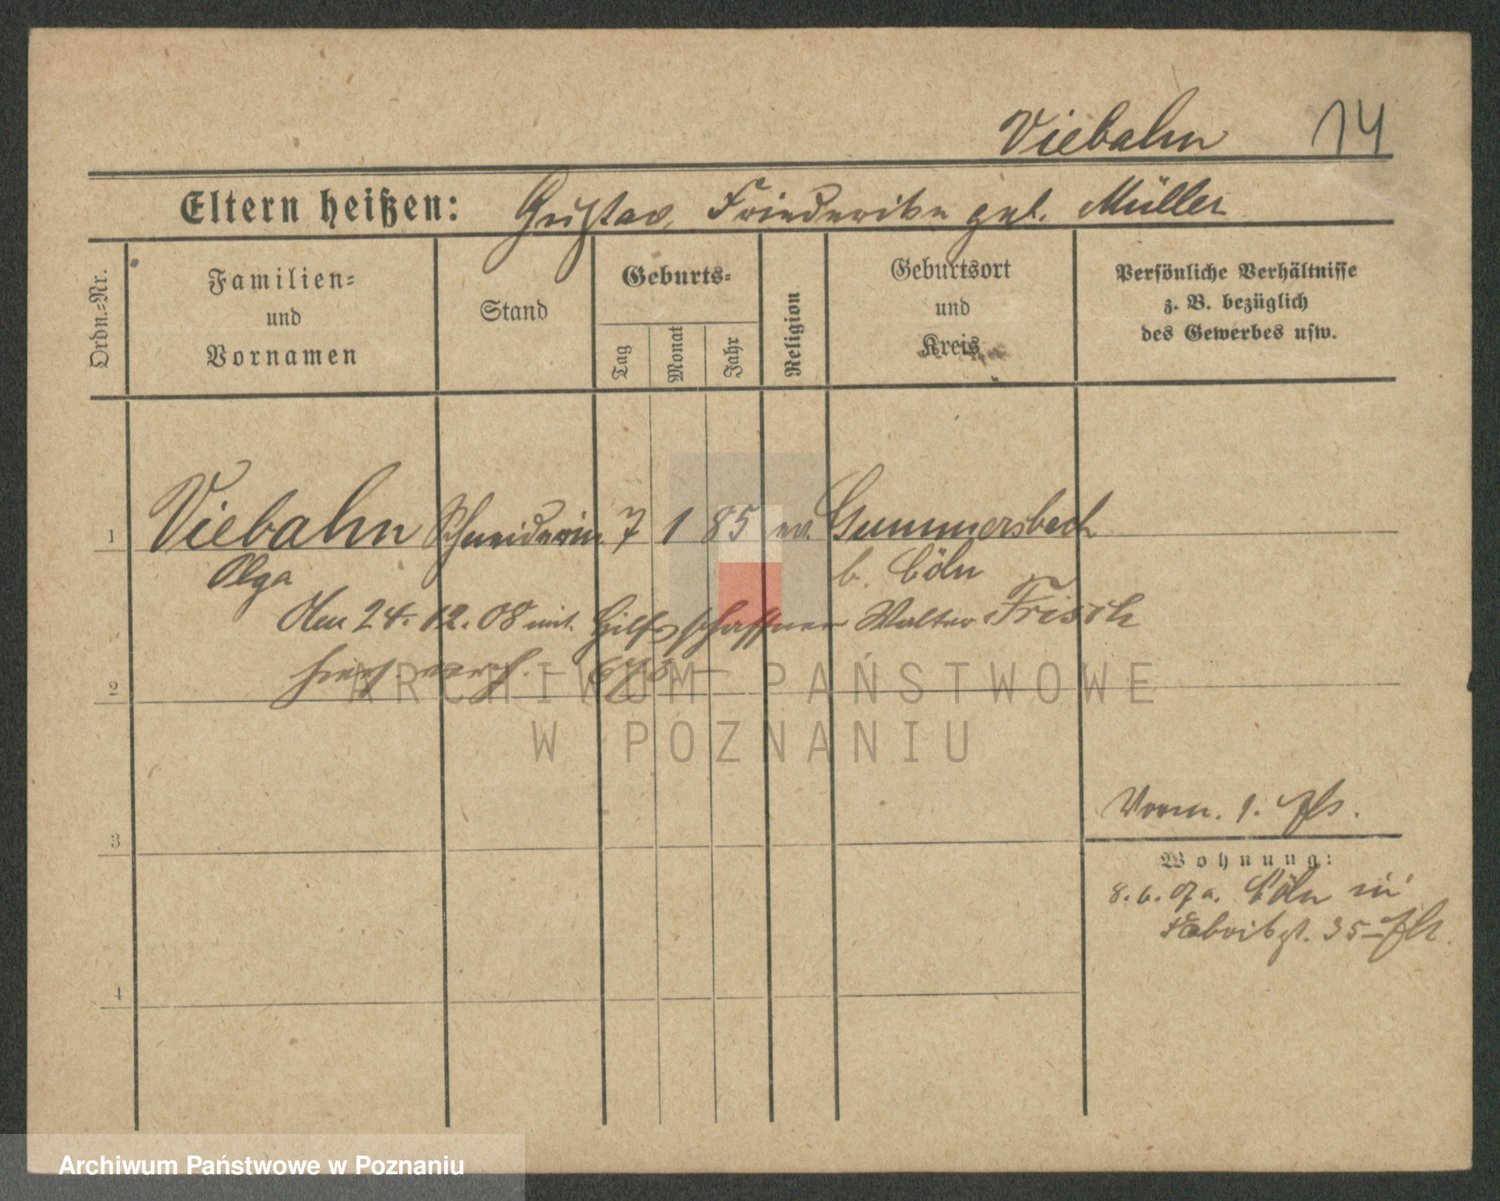 Viebahn 14
Eltern heißen: Gustav, Friederike geb. Müller
Ordn.=Nr.
Familien=
und
Vornamen
Stand
Geburts=
Tag
Monat
Jahr
Religion
Geburtsort
und
Kreis
Persönliche Verhältnisse
z. B. bezüglich
des Gewerbes usw.
1 Viebahn Schneiderin 7 1 85 ev. Gummersbach
Olga b. Cöln
Am 24.12.08 mit Hilfsschaffner Walter Frisch
hier verh.
2
ARCHIWUM PAŃSTWOWE
W POZNANIU
3
Vorm. 1.
Wohnung:
8.6.07 a. Cöln in
35
4
Archiwum Państwowe w Poznaniu